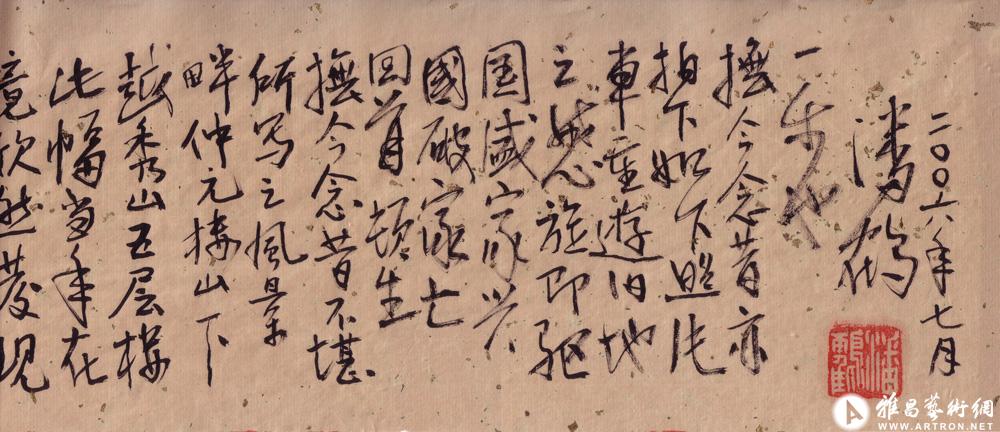 竟欣然發現
此幅当年在
越秀山五层楼
畔仲元楼山下
所写之風景
撫今念昔不堪
回首頓生
國破家亡
国盛家兴
之感旋即驱
車重遊旧地
拍下如下照片
撫今念昔亦
一乐也
潘鹤
二〇〇六年七月
潘鶴
雅昌藝術網
WWW.ARTRON.NET